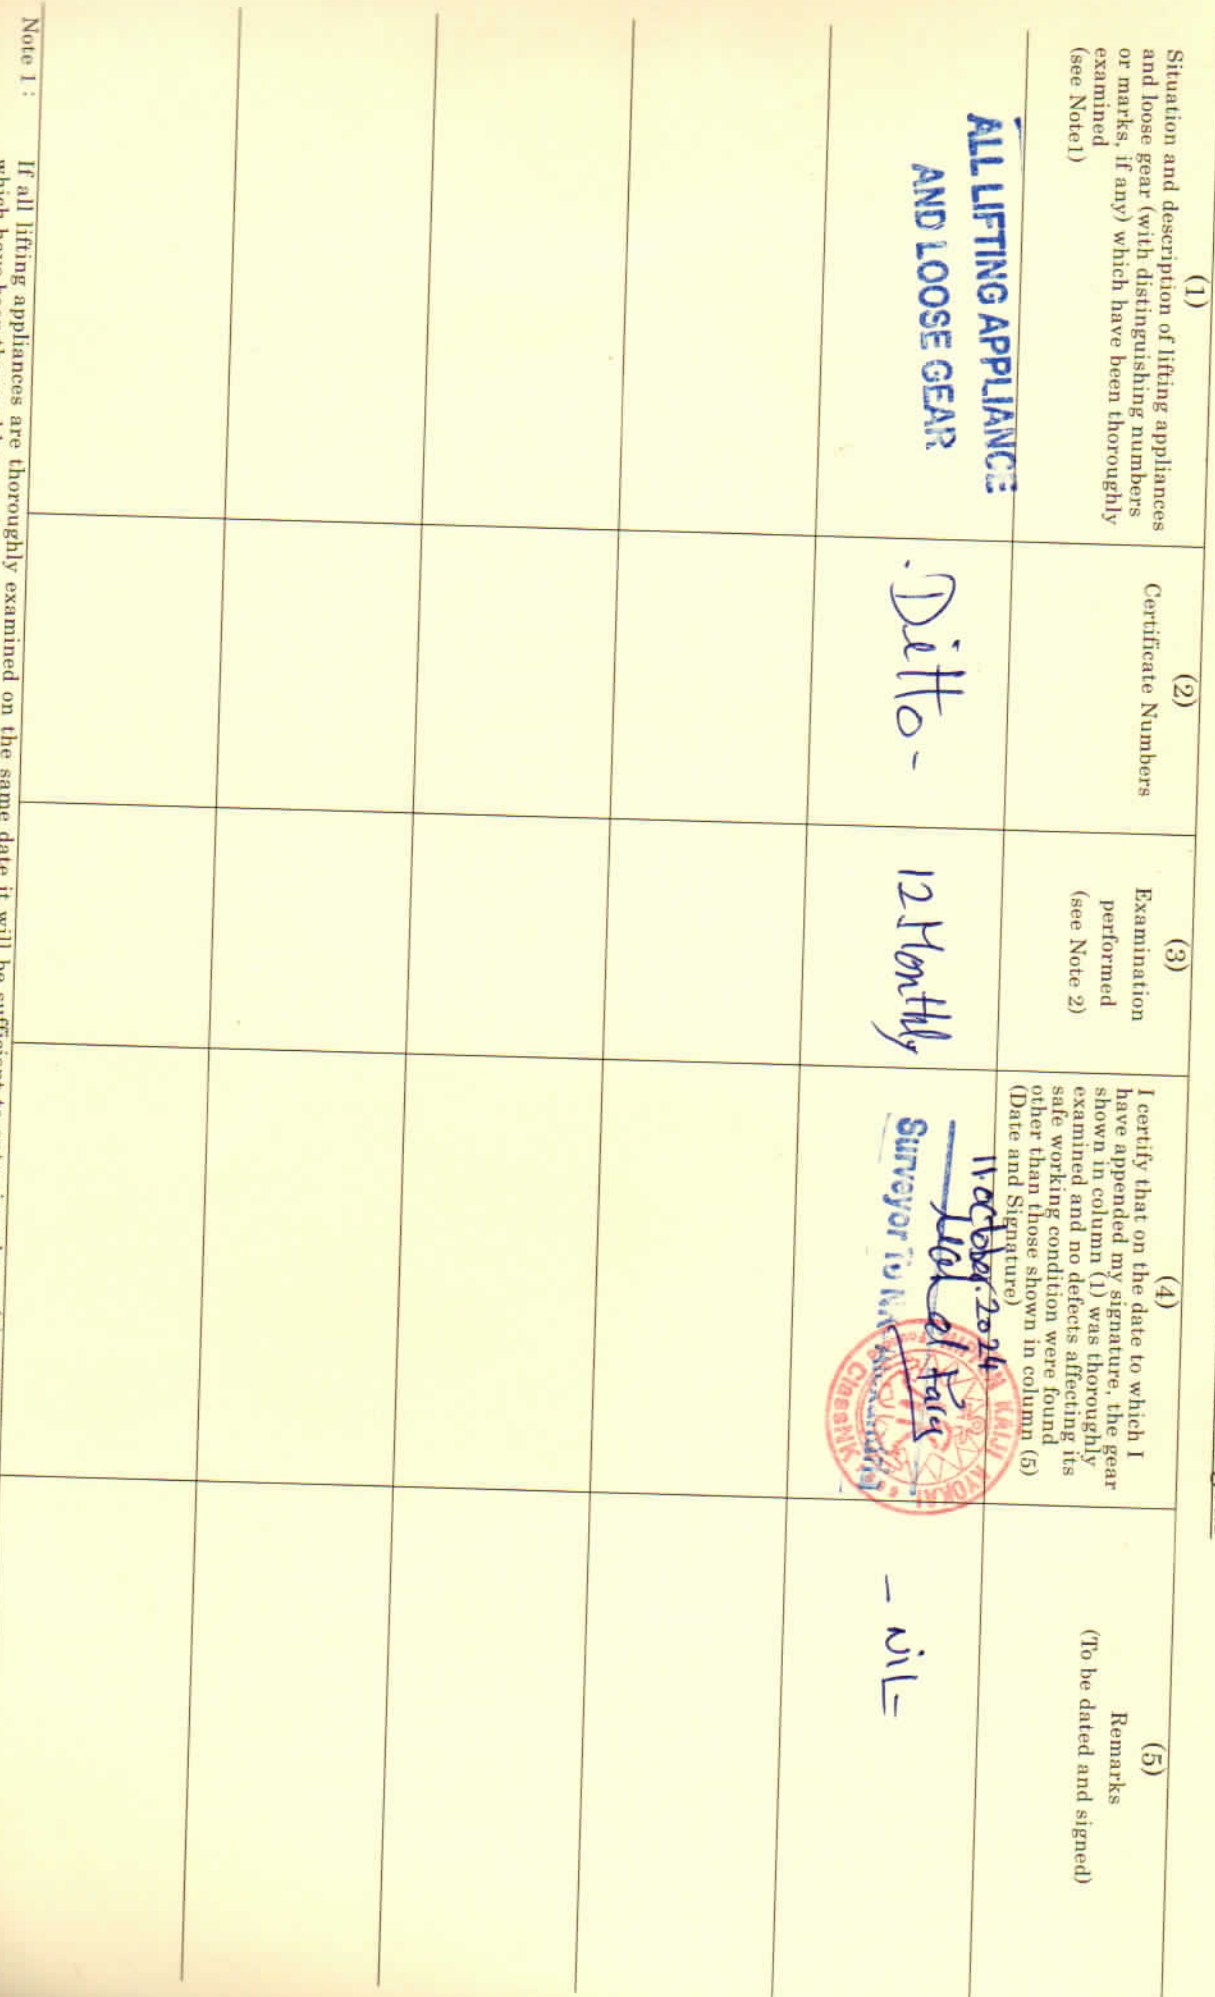 (1)
Situation and description of lifting appliances
and loose gear (with distinguishing numbers
or marks, if any) which have been thoroughly
examined
(see Note1)
(2)
Certificate Numbers
(3)
Examination
performed
(see Note 2)
(4)
I certify that on the date to which I
have appended my signature, the gear
shown in column (1) was thoroughly
examined and no defects affecting its
safe working condition were found
other than those shown in column (5)
(Date and Signature)
(5)
Remarks
(To be dated and signed)
ALL LIFTING APPLIANCE
AND LOOSE GEAR
- Ditto -
12 Monthly
11 October. 2024
Surveyor To
KAIJI KYOKAI
ClassNK
- NIL -
Note 1 : If all lifting appliances are thoroughly examined on the same date it will be sufficient to
which have been